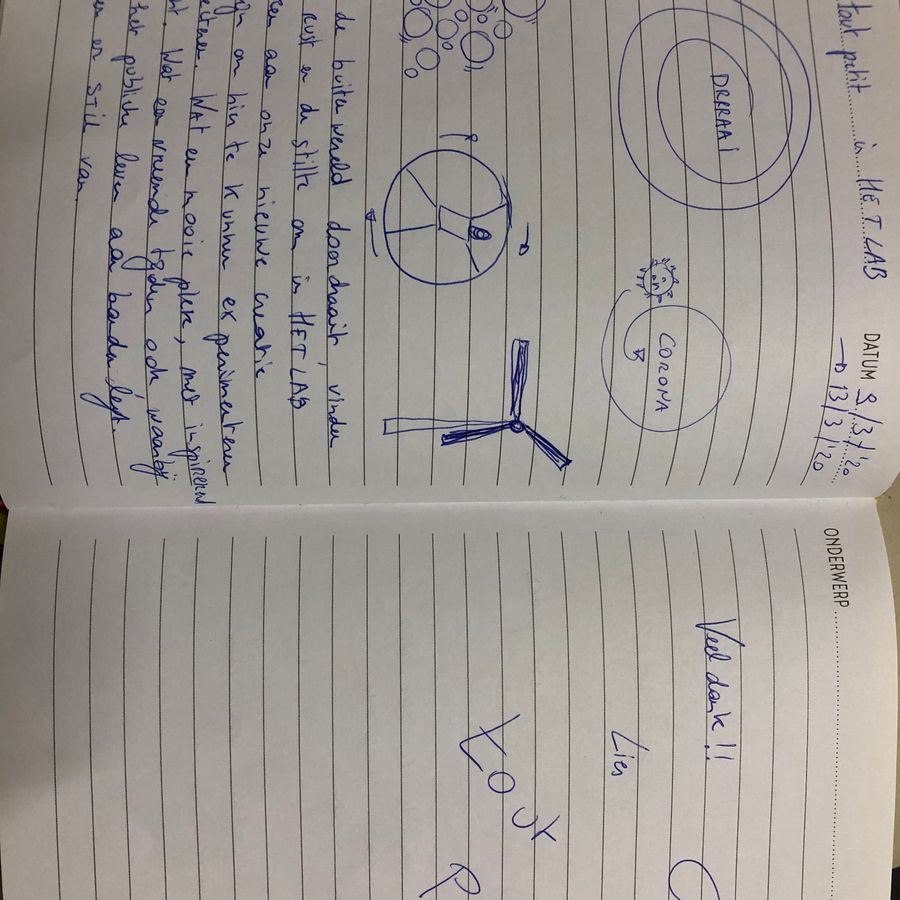 tout petit in HET LAB
DATUM 9/3/'20
→ 13/3/'20
DRRRAAI
CORONA
de buitenwereld doordraait, vinden
rust en de stilte om in HET LAB
aan onze nieuwe creatie
om hier te kunnen experimenteren
Wat een mooie plek, met inspirerend
Wat een vreemde tijden ook, waarbij
het publieke leven aan banden legt.
en stil van.
ONDERWERP
Veel dank!!
Lies